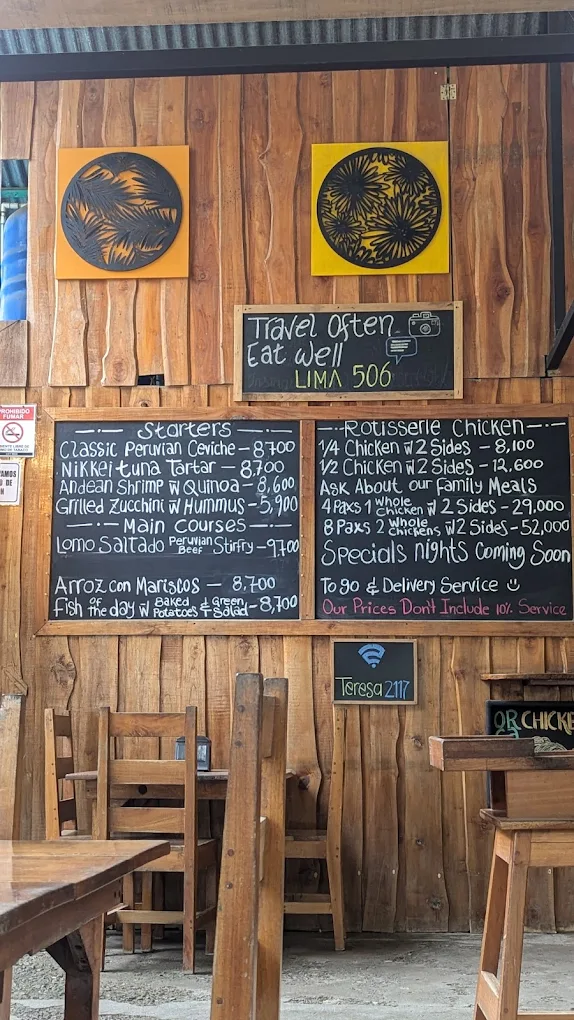 Travel Often
Eat well
LIMA 506
PROHIBIDO
FUMAR
Starters
Classic Peruvian Ceviche - 8,700
Nikkei tuna Tartar - 8,700
Andean Shrimp W Quinoa - 8,600
Grilled Zucchini W Hummus - 5,900
Main Courses
Lomo Saltado Peruvian Beef Stirfry - 9,700
Arroz con Mariscos - 8,700
Fish of the day W Baked Potatoes & Green Salad - 8,700
Rotisserie Chicken
1/4 Chicken W 2 Sides - 8,100
1/2 Chicken W 2 Sides - 12,600
Ask About our Family Meals
4 Paxs 1 Whole Chicken W 2 Sides - 29,000
8 Paxs 2 Whole Chickens W 2 Sides - 52,000
Specials nights Coming Soon
To go & Delivery Service
Our Prices Don't Include 10% Service
Teresa 2117
OR CHICKE